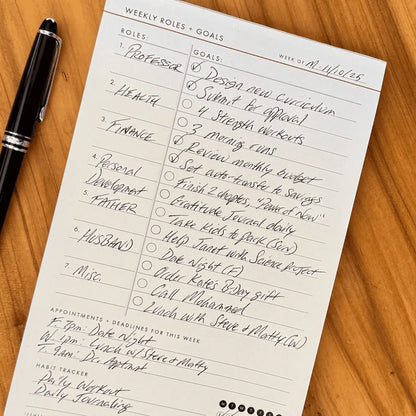 WEEKLY ROLES + GOALS
ROLES: GOALS: WEEK OF M 11/10/25
1. PROFESSOR Design new curriculum
Submit for approval
2. HEALTH 4 Strength workouts
3 morning runs
3. FINANCE Review monthly budget
Set auto-transfer to savings
4. Personal Development Finish 2 chapters, "Power of Now"
Gratitude Journal daily
5. FATHER Take kids to park (Sun)
Help Janet with Science project
6. HUSBAND Date Night (F)
Order Kate's B-Day gift
7. Misc. Call Mohammed
Lunch with Steve & Matty (W)
APPOINTMENTS + DEADLINES FOR THIS WEEK
F. 7pm: Date Night
W. 1pm: Lunch w/ Steve & Matty
T. 9am: Dr. Appt
HABIT TRACKER
Daily Workout
Daily Journaling